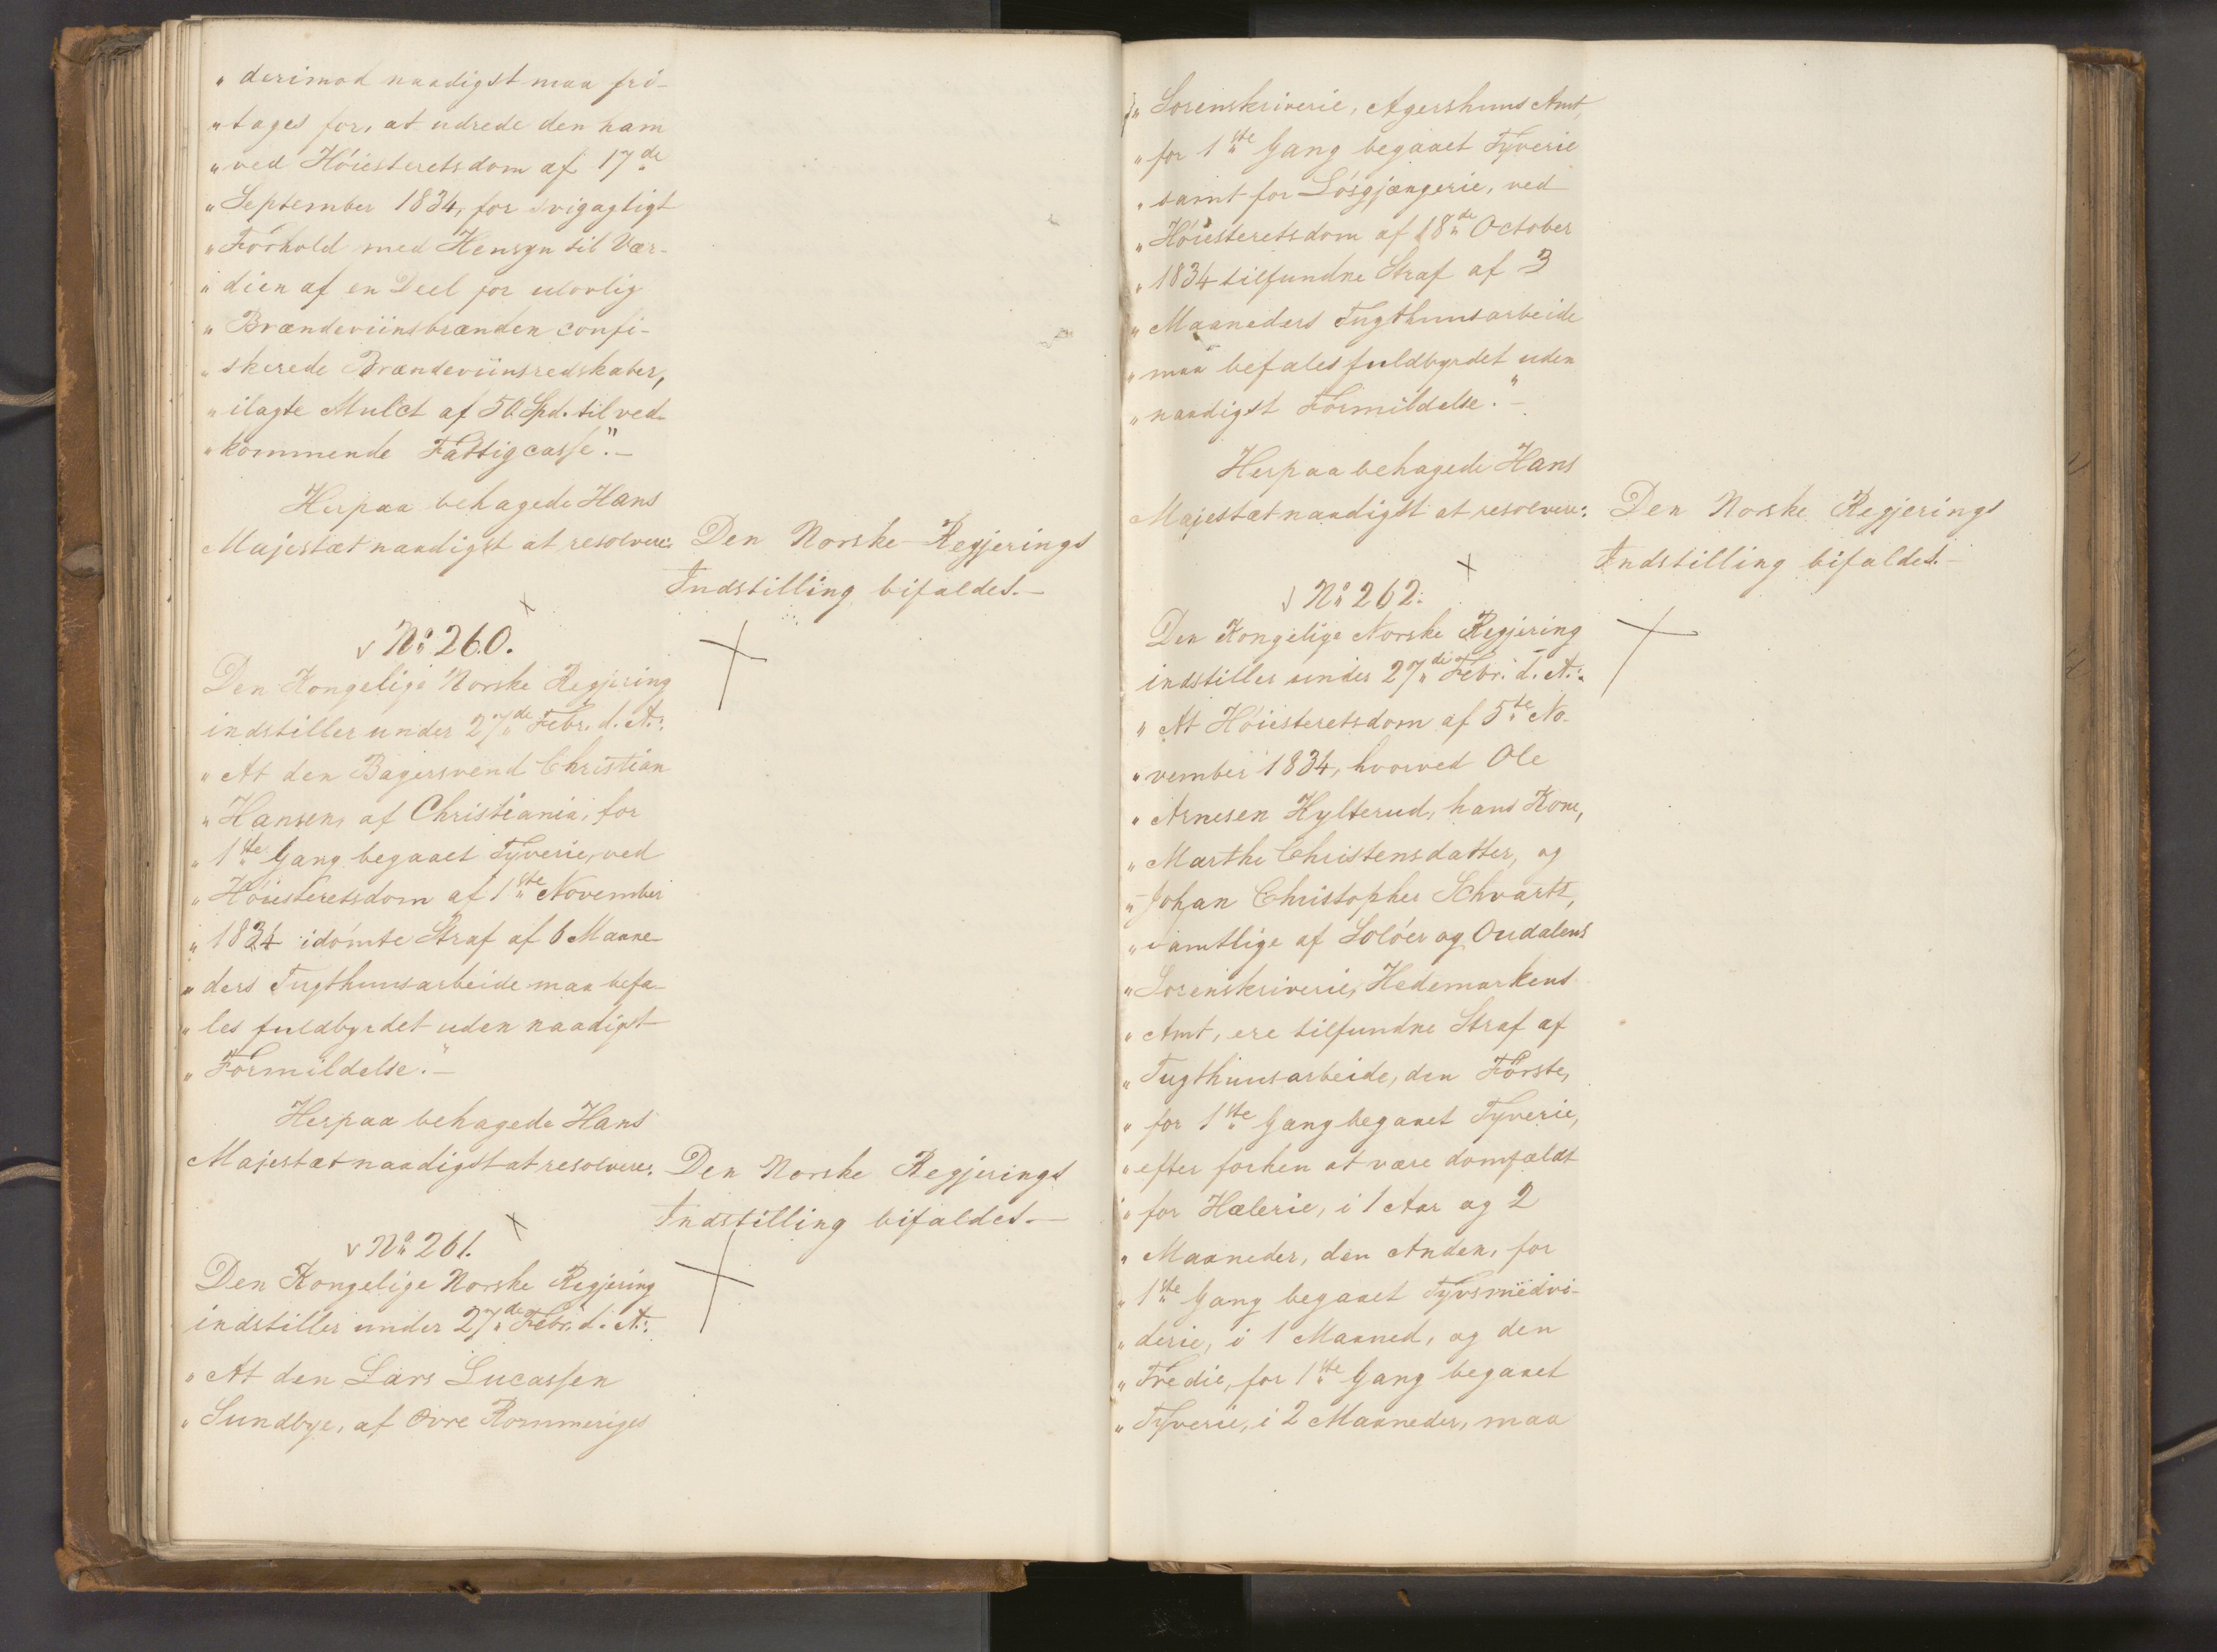 „derimod naadigst maa fri-
„tages for, at udrede den ham
„ved Höiesteretsdom af 17de
„September 1834, for svigagtigt
„Forhold med Hensyn til Vær-
„dien af en Deel for ulovlig
„Brændeviinsbrænden confi-
„skerede Brændeviinsredskaber,
„ilagte Mulct af 50 Spd. til ved-
„kommende Fattigcasse".-
Herpaa behagede Hans
Majestæt naadigst at resolvere: Den Norske Regjerings
Indstilling bifaldes.-
No 260.
Den Kongelige Norske Regjering
indstiller under 27de Febr. d. A.:
„At den Bagersvend Christian
„Hansen, af Christiania, for
„1ste Gang begaaet Tyverie, ved
„Höiesteretsdom af 1ste November
„1834 idömte Straf af 6 Maane-
„ders Tugthuusarbeide maa befa-
„les fuldbyrdet uden naadigst
„Formildelse."-
Herpaa behagede Hans
Majestæt naadigst at resolvere: Den Norske Regjerings
Indstilling bifaldes.-
No 261.
Den Kongelige Norske Regjering
indstiller under 27de Febr. d. A.:
„At den Lars Lucassen
„Sundbye, af Övre Rommeriges
„Sorenskriverie, Agershuus Amt,
„for 1ste Gang begaaet Tyverie
„samt for Lösgjængerie, ved
„Höiesteretsdom af 18de October
„1834 tilfundne Straf af 3
„Maaneders Tugthuusarbeide
„maa befales fuldbyrdet uden
„naadigst Formildelse."-
Herpaa behagede Hans
Majestæt naadigst at resolvere: Den Norske Regjerings
Indstilling bifaldes.-
No 262.
Den Kongelige Norske Regjering
indstiller under 27de Febr. d. A.:
„At Höiesteretsdom af 5te No-
„vember 1834, hvorved Ole
„Arnesen Hylterud, hans Kone,
„Marthe Christensdatter, og
„Johan Christopher Schvartt,
„samtlige af Solöer og Oudalens
„Sorenskriverie, Hedemarkens
„Amt, ere tilfundne Straf af
„Tugthuusarbeide, den Förste,
„for 1ste Gang begaaet Tyverie,
„efter forhen at være domfældt
„for Hælerie, i 1 Aar og 2
„Maaneder, den Anden, for
„1ste Gang begaaet Tyvsmedvi-
„derie, i 1 Maaned, og den
„Tredie, for 1ste Gang begaaet
„Tyverie, i 2 Maaneder, maa